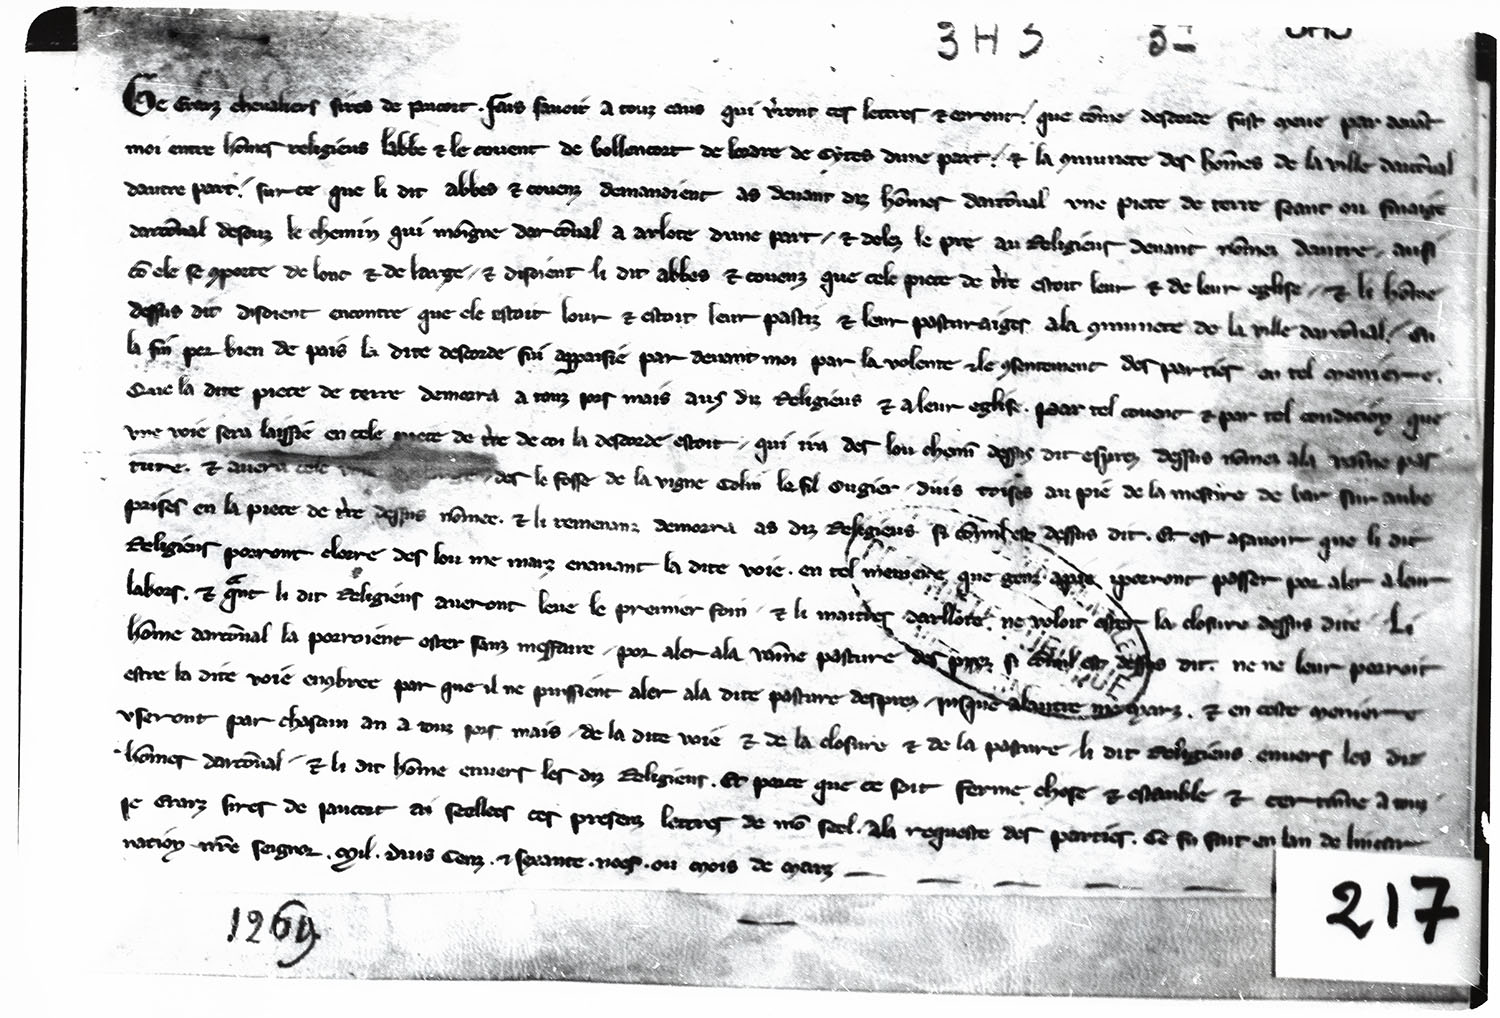 3 H 5
Ge Erarz chevaliers sires de Jaucort. fais savoir a touz ceus qui v'ront ces lettres & orront / que cōme descorde fust meue par davāt
moi entre hōmes religieus labbe & le couent de bollencort de lordre de Cytes dune part / & la 9munete des hōmes de la ville darcōual
dautre part / sur ce que li dit abbes & couenz demandoient as deuant diz hōmes darcōual vne piece de terre seant ou finaige
darcōual desouz le chemin qui moigne darcōual a arlete dune part / & delez le pre au Religieus deuant nōmez dautre / ausi
cō ele se 9porte de lonc & de large / & disoient li dit abbes & couenz que cele piece de t're estoit leur & de leur eglise / & li hōme
dessus dit disoient encontre que ele estoit lour & estoit leur pastiz & leur pasturaiges a la 9munete de la ville darcōual / en
la fin por bien de pais la dite descorde fu appaisie par deuant moi par la volente & le 9sentement des parties en tel meniere.
Que la dite piece de terre demorra a touz jors mais aus diz Religieus & a leur eglise. par tel couent & par tel condicion que
vne voie sera laissie en cele piece de t're de coi la descorde estoit / qui ira des lou chemī dessus dit es prez dessus nōmez a la vainne pas
ture. & auera cele des le fosse de la vigne Colin le fil Ougier / deus toises au pie de la mesure de bar sur aube
prises en la piece de t're dessus nōmee. & li remenanz demorra as diz Religieus si cōme il est dessus dit. Et est asauoir que li dit
Religieus porront clorre des lou me marz enauant la dite voie. en tel meniere que genz a pie i porront passer por aler a leur
labors. & quāt li dit Religieus aueront leue le premier foin / & li maitres darllete ne voloit oster la closure dessus dite / Li
hōme darcōual la porroient oster sanz mesfaire / por aler a la vainne pasture des prez si cōme il est dessus dit. ne ne leur porroit
estre la dite voie enconbree par que il ne puissient aler a la dite pasture des prez / jusque a lautre mi marz. & en ceste meniere
vseront par chascun an a touz jors mais / de la dite voie & de la closure & de la pasture / li dit Religieus envers les diz
hōmes darcōual / & li dit hōme envers les diz Religieus. Et porce que ce soit ferme chose & estauble & certainne a touz
je Erarz sires de jaucort ai seellees ces presenz lettres de mō seel. a la requeste des parties. Ce fu fait en lan de lincar
nacion nr̄e seignor. Mil. deus Cenz. & sexante. noef. ou mois de Marz
1269
217